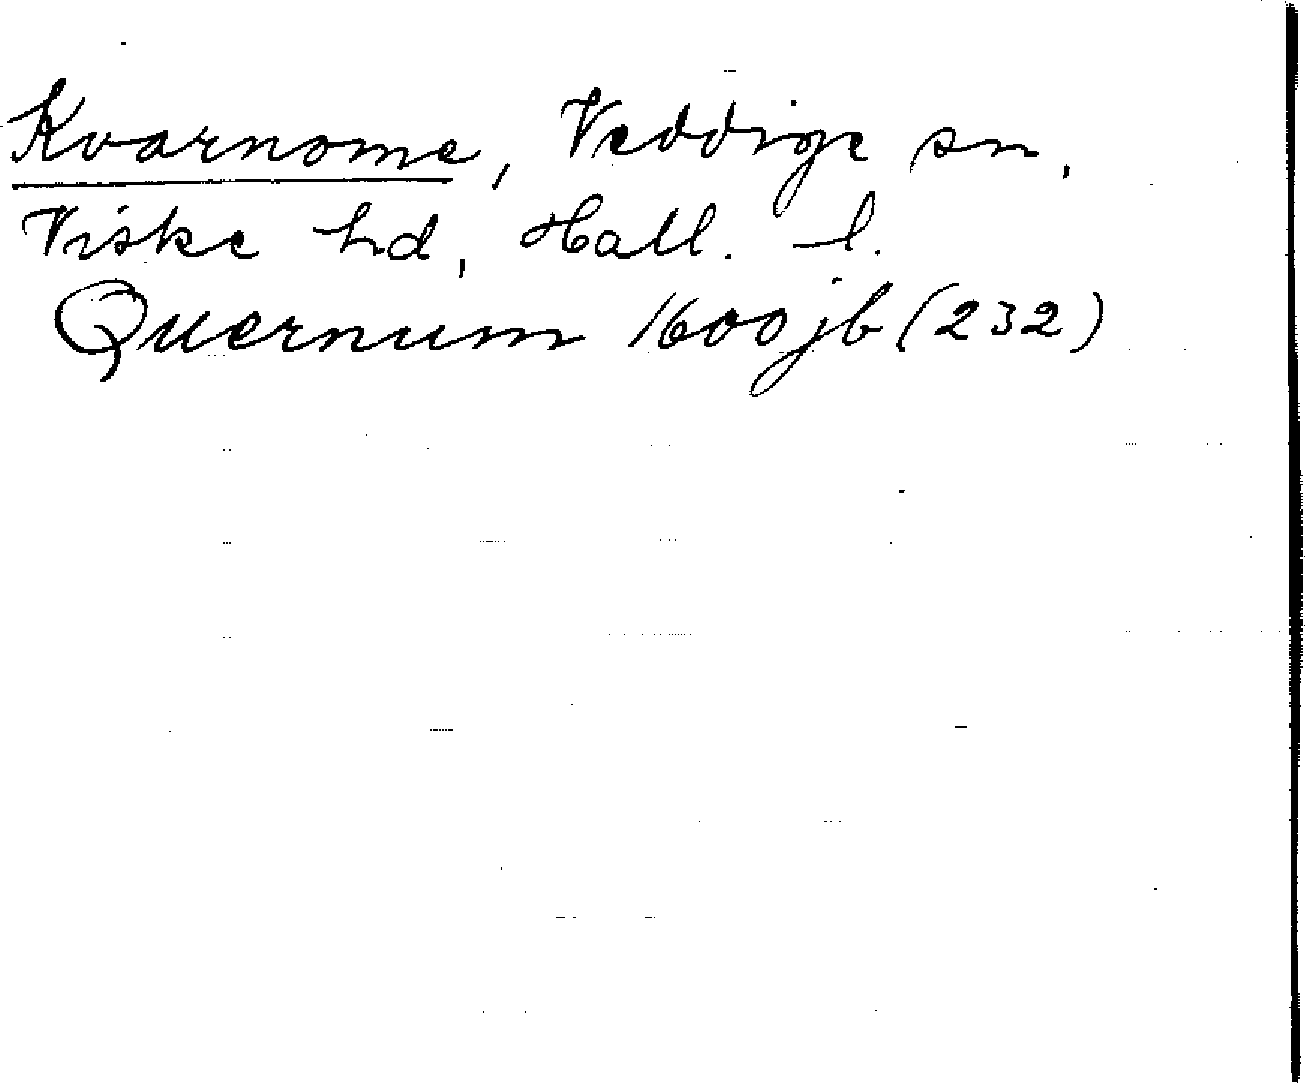 Kvarnome, Veddige sn,
Viske hd, Hall. l.
Quernum 1600 jb (232)